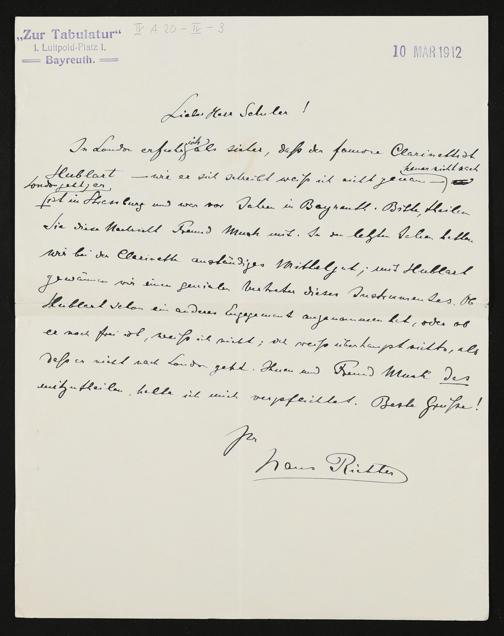 „Zur Tabulatur“
1. Luitpold-Platz 1.
Bayreuth.
IV A 20 - IV - 3
10 MÄR 1912
Lieber Herr Schuler!
In London erfuhr ich als sicher, daß der famose Clarinettist
Hublart — wie er sich schreibt weiß ich nicht genau — heuer nicht nach
London geht; er
ist in Strassburg und war vor Jahren in Bayreuth. Bitte, theilen
Sie diese Nachricht Freund Muck mit. In den letzten Jahren hatten
wir bei der Clarinette anständiges Mittelgut; mit Hublart
gewännen wir einen genialen Vertreter dieses Instrumentes. Ob
Hublart schon ein anderes Engagement angenommen hat, oder ob
er noch frei ist, weiß ich nicht; ich weiß überhaupt nichts, als
daß er nicht nach London geht. Ihnen und Freund Muck das
mitzutheilen, halte ich mich verpflichtet. Beste Grüße!
Ihr
Hans Richter